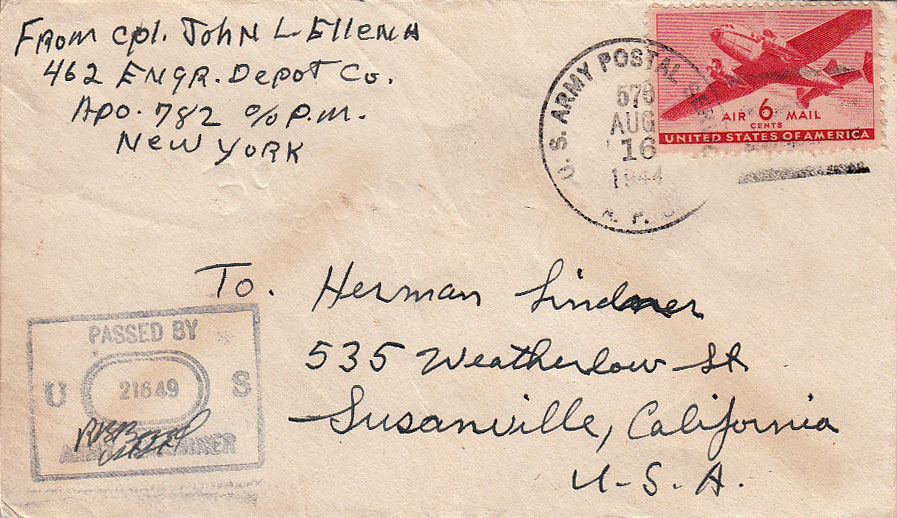 From Cpl. John L. Ellena
462 Engr. Depot Co.
Apo. 782 c/o P.M.
New York
U.S. ARMY POSTAL
AUG
16
1944
A. P.
AIR 6 MAIL
CENTS
UNITED STATES OF AMERICA
To. Herman Lindner
535 Weatherlow St
Susanville, California
U.S.A.
PASSED BY
U 21649 S
ARMY EXAMINER